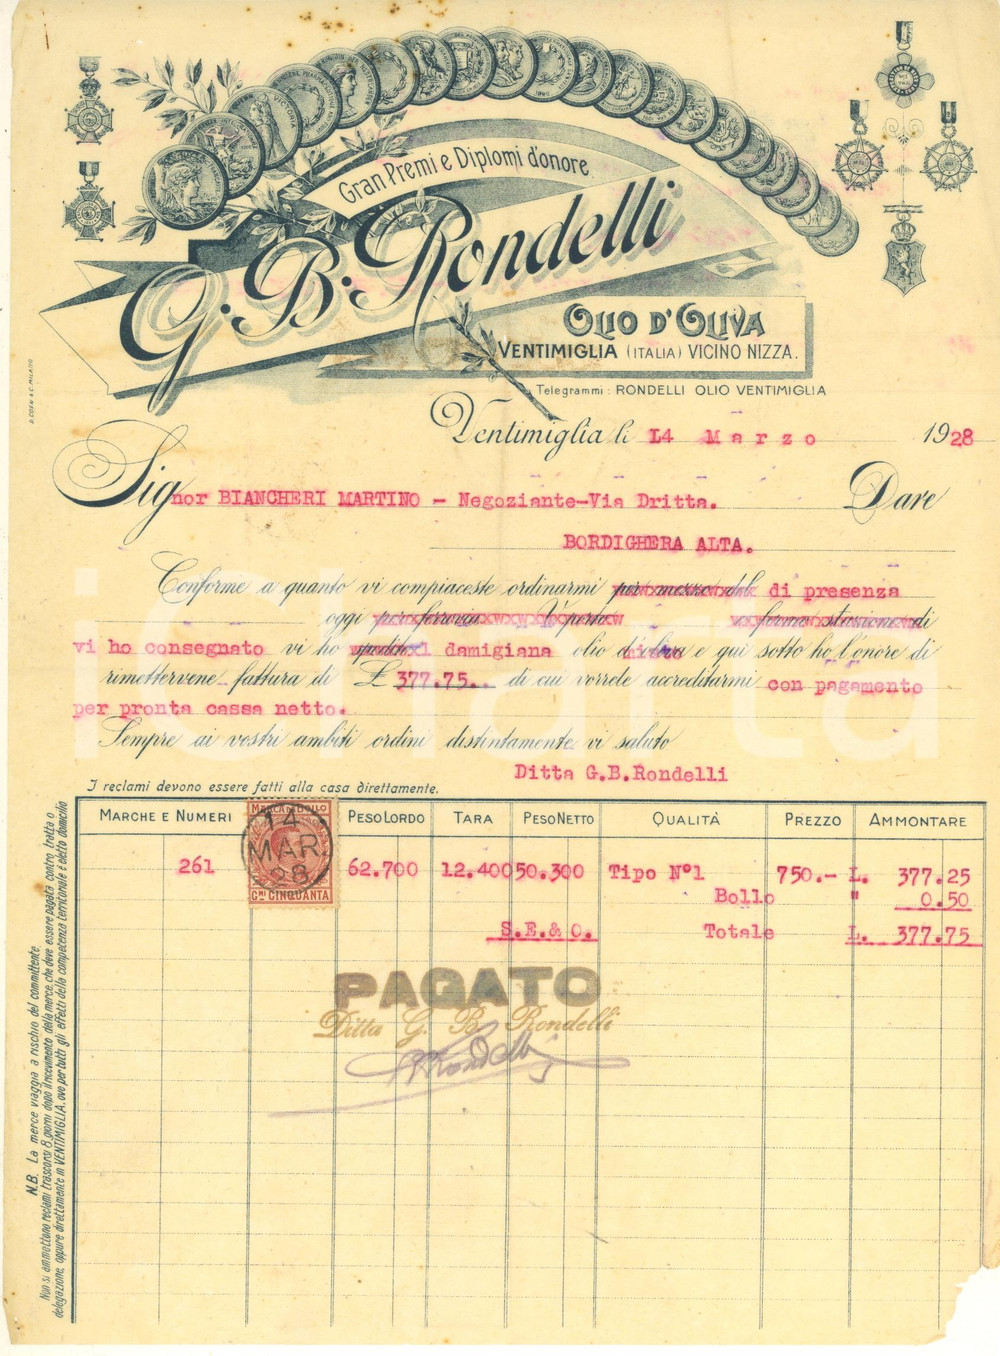 Gran Premi e Diplomi d'onore
G. B. Rondelli
OLIO D'OLIVA
VENTIMIGLIA (ITALIA) VICINO NIZZA.
Telegrammi: RONDELLI OLIO VENTIMIGLIA
Ventimiglia li 14 Marzo 1928
Signor BIANCHERI MARTINO - Negoziante-Via Dritta. Dare
BORDIGHERA ALTA.
Conforme a quanto vi compiaceste ordinarmi per mezzo del di presenza
oggi per ferrovia Vaporto fermo stazione di
vi ho consegnato vi ho spedito 1 damigiana olio di oliva e qui sotto ho l'onore di
rimettervene fattura di £ 377.75.. di cui vorrete accreditarmi con pagamento
per pronta cassa netto.
Sempre ai vostri ambiti ordini distintamente vi saluto
Ditta G.B.Rondelli
I reclami devono essere fatti alla casa direttamente.
MARCHE E NUMERI PESO LORDO TARA PESO NETTO QUALITÀ PREZZO AMMONTARE
MARCA DA BOLLO
14 MAR 28
CMI CINQUANTA
261 62.700 12.400 50.300 Tipo N°1 750.- L. 377.25
Bollo " 0.50
S.E.& O. Totale L. 377.75
PAGATO
Ditta G. B. Rondelli
Rondelli
N.B. La merce viaggia a rischio del committente.
Non si ammettono reclami trascorsi 8 giorni dopo il ricevimento della merce, che deve essere pagata contro tratta o
delegazione, oppure direttamente in VENTIMIGLIA, ove per tutti gli effetti della competenza territoriale è eletto domicilio